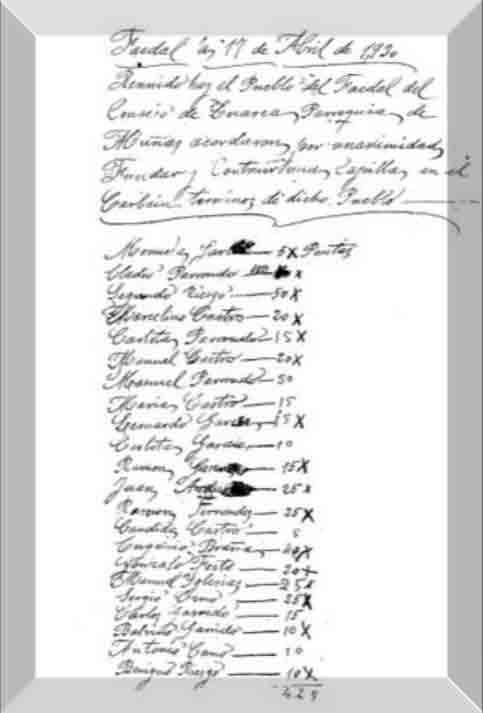 Faedal a 17 de Abril de 1,930
Reunido hoy el Pueblo del Faedal del
Consejo de Luarca, Parroquia, de
Muñas acordaron, por unanimidad,
Fundar y Contruir una, Capilla, en el
terminos di dicho, Pueblo
5 X Pentas
Parrondo X
Segundo Riesgo 50 X
Marcelino Castro 20 X
Carlota, Parrondo 15 X
Manuel Castro 20 X
Manuel Parrondo 50
Maria, Castro 15
Leonardo Garcia 15 X
Carlota, Garcia 10
Ramon, 15 X
Juan, 25 X
Ramon, Fernandez 25 X
Candida, Castro 5
Eugenio, Braña, 40 X
Gonzalo Feito 20 X
Manuel Iglesias 25 X
Sergio Cano 25 X
Carlos Garrido 15
Garrido 10 X
Antonio Cano 10
Benigno Riesgo 10 X
429